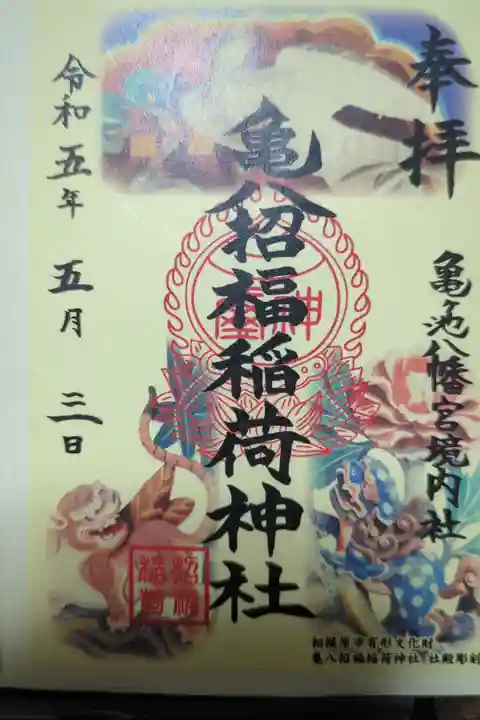 奉拝
亀池八幡宮境内社
亀八招福稲荷神社
令和五年五月三日
招福稲荷
相模原市有形文化財
亀八招福稲荷神社 社殿彫刻